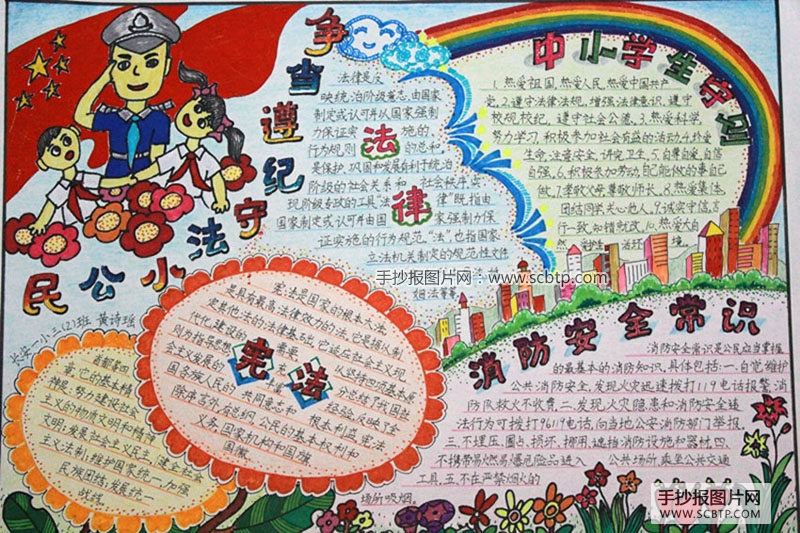 争当遵纪守法小公民
长安一小三(2)班 黄诗瑶
法律
法律是反
映统治阶级意志,由国家
制定或认可并以国家强制
力保证实 施的、
行为规则 的总和
是保护、巩固和发展有利于统治
阶级的社会关系和 社会秩序,实
现阶级专政的工具"法 律"既指由
国家制定或认可并由国 家强制力保
证实施的行为规范,"法"也指国家
立法机关制定的规范性文件
姻法等等。
中小学生守则
1.热爱祖国,热爱人民,热爱中国共产
党。2.遵守法律法规,增强法律意识。遵守
校规校纪,遵守社会公德。3.热爱科学,
努力学习,积极参加社会有益的活动。4.珍爱
生命,注意安全,讲究卫生。5.自尊自爱,自信
自强。6.积极参加劳动,自己能做的事自己
做。7.孝敬父母,尊敬师长。8.热爱集体,
团结同学,关心他人。9.诚实守信,言
行一致,知错就改。10.热爱大自
然 活环 境
手抄报图片网:www.scbtp.com
宪法
宪法是国家的根本大法,
是具有最高法律效力的法,它是据以制
定其他法的法律基础,它适应社会主义现
代化建设的 需要
会主义发展的
国各族人民的 共同意志和 根本利益,宪法
除序言外,有总纲,公民的基本权利和
义务,国家机构和国旗
国徽
神是:努力建设社会
主义的物质文明和精神
文明;发展社会主义民主,健全社会
主义法制;维护国家统一,加强
民族团结;发展统一
战线
消防安全常识
消防安全常识是公民应当掌握
的最基本的消防知识,具体包括:一、自觉维护
公共消防安全,发现火灾迅速拨打119电话报警,消
防队救火不收费。二、发现火灾隐患和消防安全违
法行为可拨打96119电话,向当地公安消防部门举报。
三、不埋压、圈占、损坏、挪用、遮挡消防设施和器材。四、
不携带易燃易爆危险品进入 公共场所、乘坐公共交通
工具。五、不在严禁烟火的
场所吸烟。
手抄报图片网
SCBTP.COM